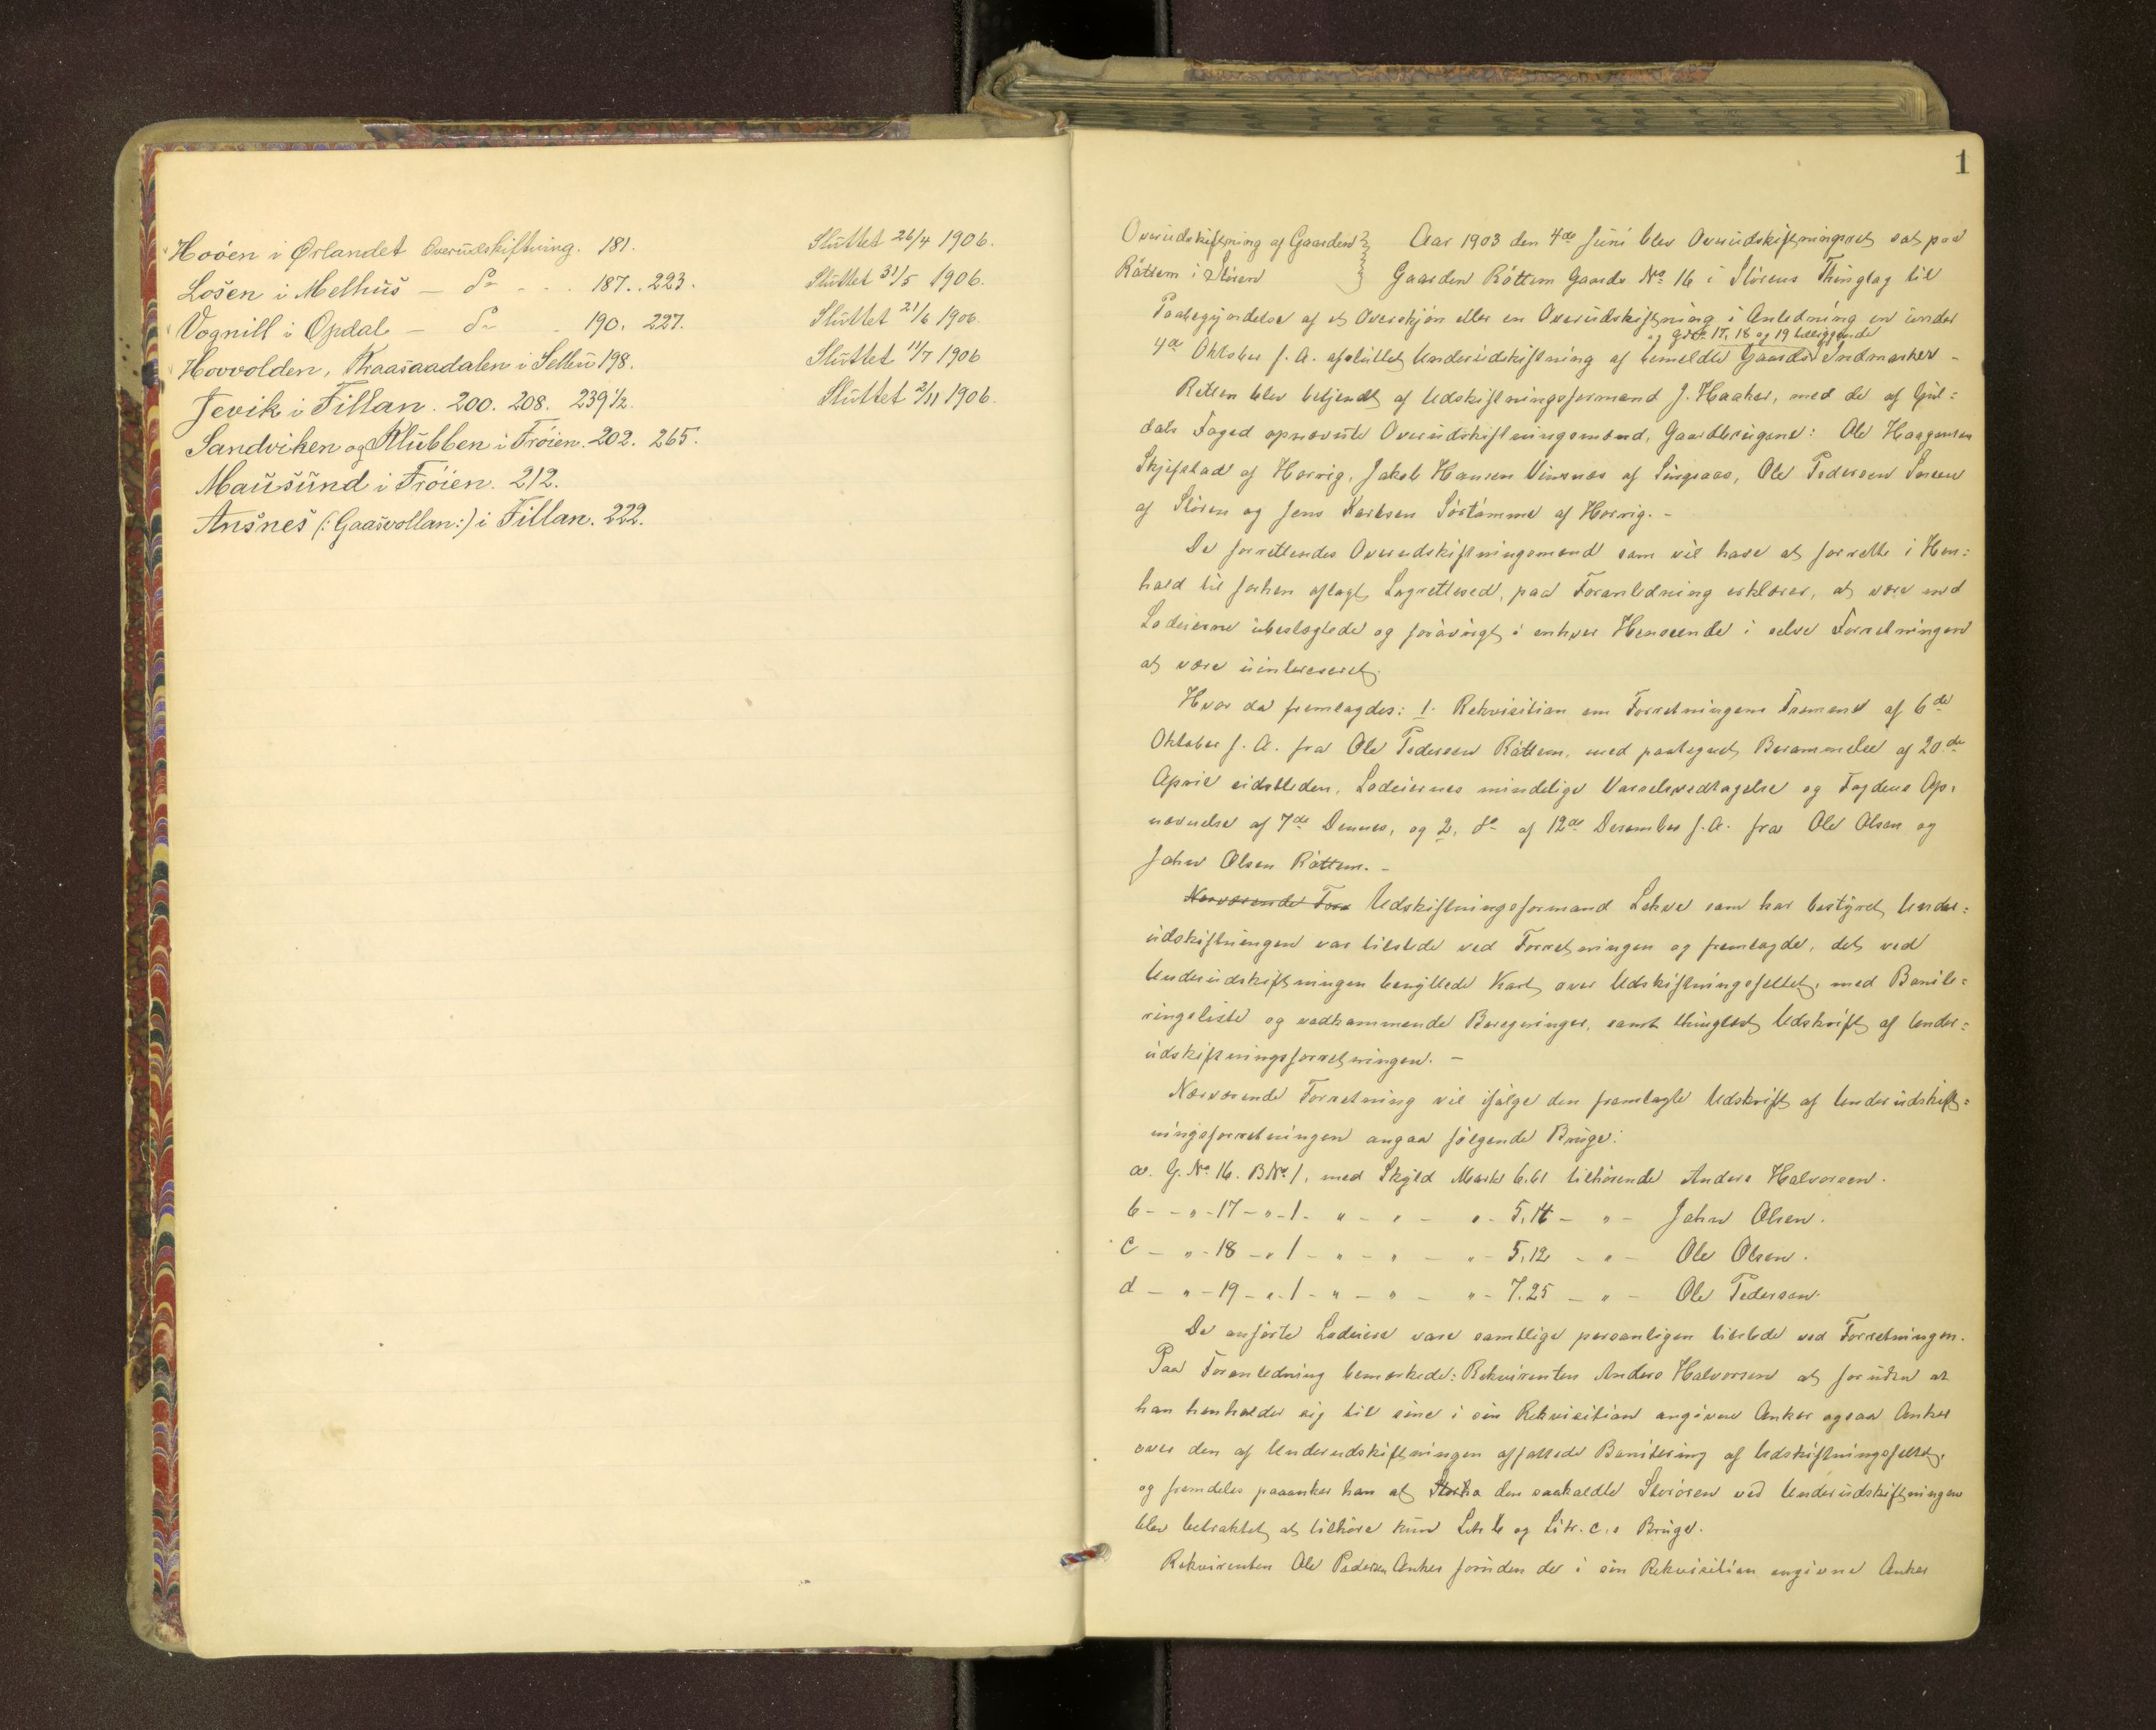 Hoøen i Ørlandet Overudskiftning. 181. Sluttet 26/4 1906.
Losen i Melhus — Do - . . 187. . 223. Sluttet 31/5 1906.
Vognill i Opdal — Do . 190. 227. Sluttet 21/6 1906.
Hovvolden, Kraasaadalen i Selbu 198. Sluttet 11/7 1906
Jevik i Fillan. 200. 208. 239 1/2. Sluttet 2/11 1906.
Sandviken og Klubben i Frøien. 202. 265.
Mausund i Frøien. 212.
Ansnes (: Gaasvollan :) i Fillan. 222.
1
Overudskiftning af Gaarden
Råttem i Støren
Aar 1903 den 4de Juni blev Overudskiftningsret sat paa
Gaarden Råttem Gaards No 16 i Størens Thinglag til
Paabegyndelse af et Overskjøn eller en Overudskiftning i Anledning en under
og No 17, 18 og 19 beliggende
4de Oktober f. A. afsluttet Underudskiftning af bemeldte Gaards Indmarker –
Retten blev betjendt af Udskiftningsformand J. Haaker, med de af Gul=
dals Foged opnævnte Overudskiftningsmænd, Gaardbrugerne: Ole Haagensen
Skjefstad af Horrig, Jakob Hansen Vinsnes af Singsaas, Ole Pedersen Soreen
af Støren og Jens Karlsen Sørtømme af Horrig. –
De forrettendes Overudskiftningsmænd som vil have at forrette i Hen=
hold til forhen aflagt Lagrettesed, paa Foranledning erklærer, at være med
Lodeierne ubeslægtede og forøvrigt i enhver Henseende i selve Forretningen
at være uinteresseret.
Hvor da fremlagdes: 1. Rekvisition om Forretningens Fremme af 6de
Oktober f. A. fra Ole Pedersen Råttem, med paategnet Berammelse af 20de
April sidstleden, Lodeiernes mindelige Varselsvedtagelse og Fogdens Op=
nævnelse af 7de Dennes, og 2, do af 12de Desember f. A. fra Ole Olsen og
John Olsen Råttem. –
Nærværende Forr Udskiftningsformand Lekve som har bestyret Under=
udskiftningen var tilstede ved Forretningen og fremlagde, det ved
Underudskiftningen benyttede Kart over Udskiftningsfeltet, med Bonite=
ringsliste og vedkommende Beregninger, samt thinglæst Udskrift af Under=
udskiftningsforretningen. –
Nærværende Forretning vil ifølge den fremlagte Udskrift af Underudskift=
ningsforretningen angaa følgende Bruge:
a. G. No 16. BNo 1, med Skyld Mark 6.61 tilhørende Anders Halvorsen.
b - - " - 17 - " - 1 - " - " - " - 5,14 - " - John Olsen.
c - " - 18 - " 1 - " - " - " - 5,12 - " - Ole Olsen.
d - " - 19 - " - 1 - " - " - " - 7.25 - " - Ole Pedersen.
De anførte Lodeiere vare samtlige personligen tilstede ved Forretningen.
Paa Foranledning bemærkede: Rekvirenten Anders Halvorsen at foruden at
han henholder sig til sine i sin Rekvisition angivne Anker ogsaa Anker
over den af Underudskiftningen affattede Bonitering af Udskiftningsfeltet,
og fremdeles paaanker han at den saakaldte Storøren ved Underudskiftningen
blev betraktet at tilhøre kun Litr. b og Litr. c.s Bruge.
Rekvirenten Ole Pedersen Anker foruden de i sin Rekvisition angivne Anker